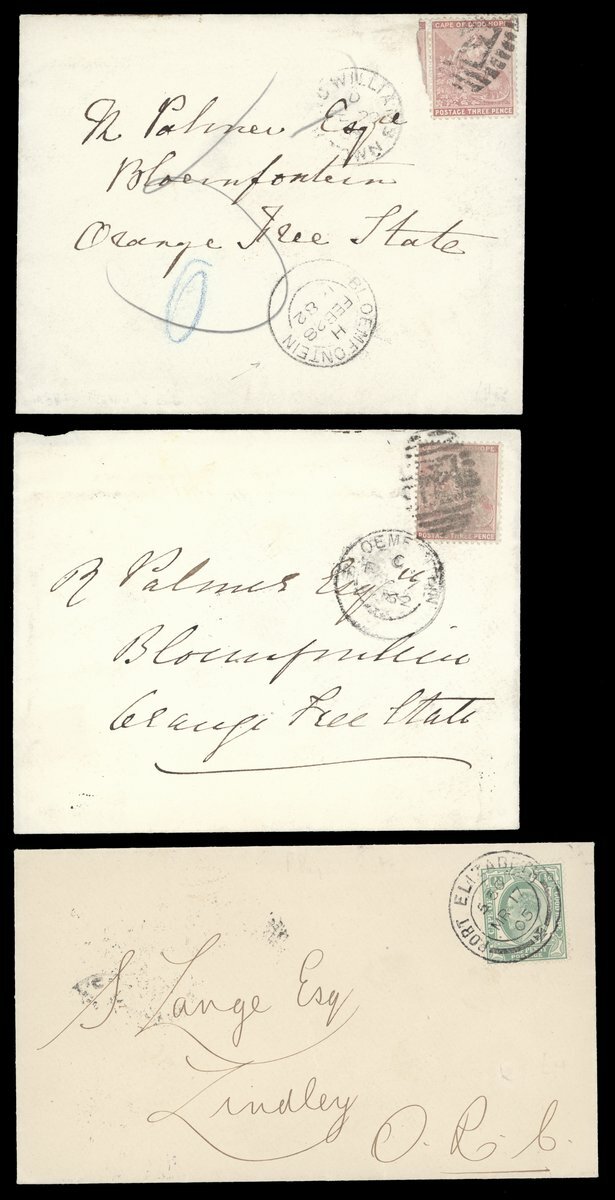 CAPE OF GOOD HOPE
POSTAGE THREE PENCE
WILLIAM'S
R Palmer Esqre
Bloemfontein
Orange Free State
5
0
BLOEMFONTEIN
H
FEB 28
82
OF GOOD HOPE
POSTAGE THREE PENCE
BLOEMFONTEIN
82
R Palmer Esq
Bloemfontein
Orange Free State
PORT ELIZABETH
AP 17
05
S. Lange Esq
Lindley
O. R. C.